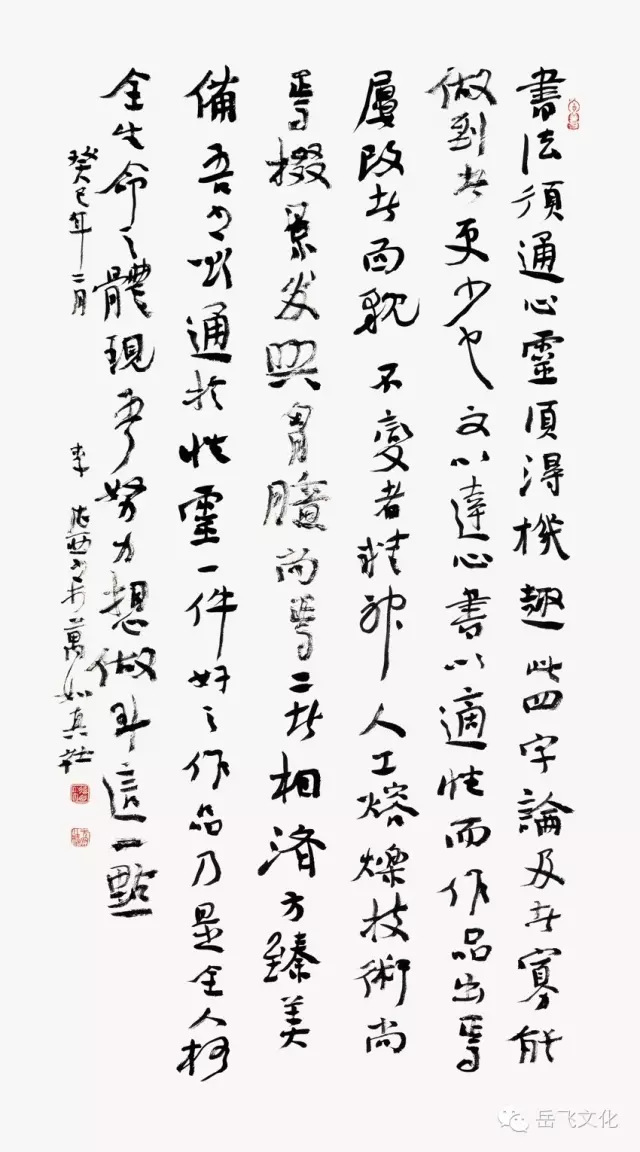 書法須通心靈須得機趣此四字論及者寡能
做到者更少也文以達心書以適性而作品出焉
屢改者面貌不變者精神人工熔爍技術尚
焉掇景发興胷臆尚焉二者相濟方臻美
備吾書以通於性靈一件好之作品乃是全人格
全生命之體現吾努力想做到這一點
癸巳年二月
李 書於萬如真社
岳飞文化